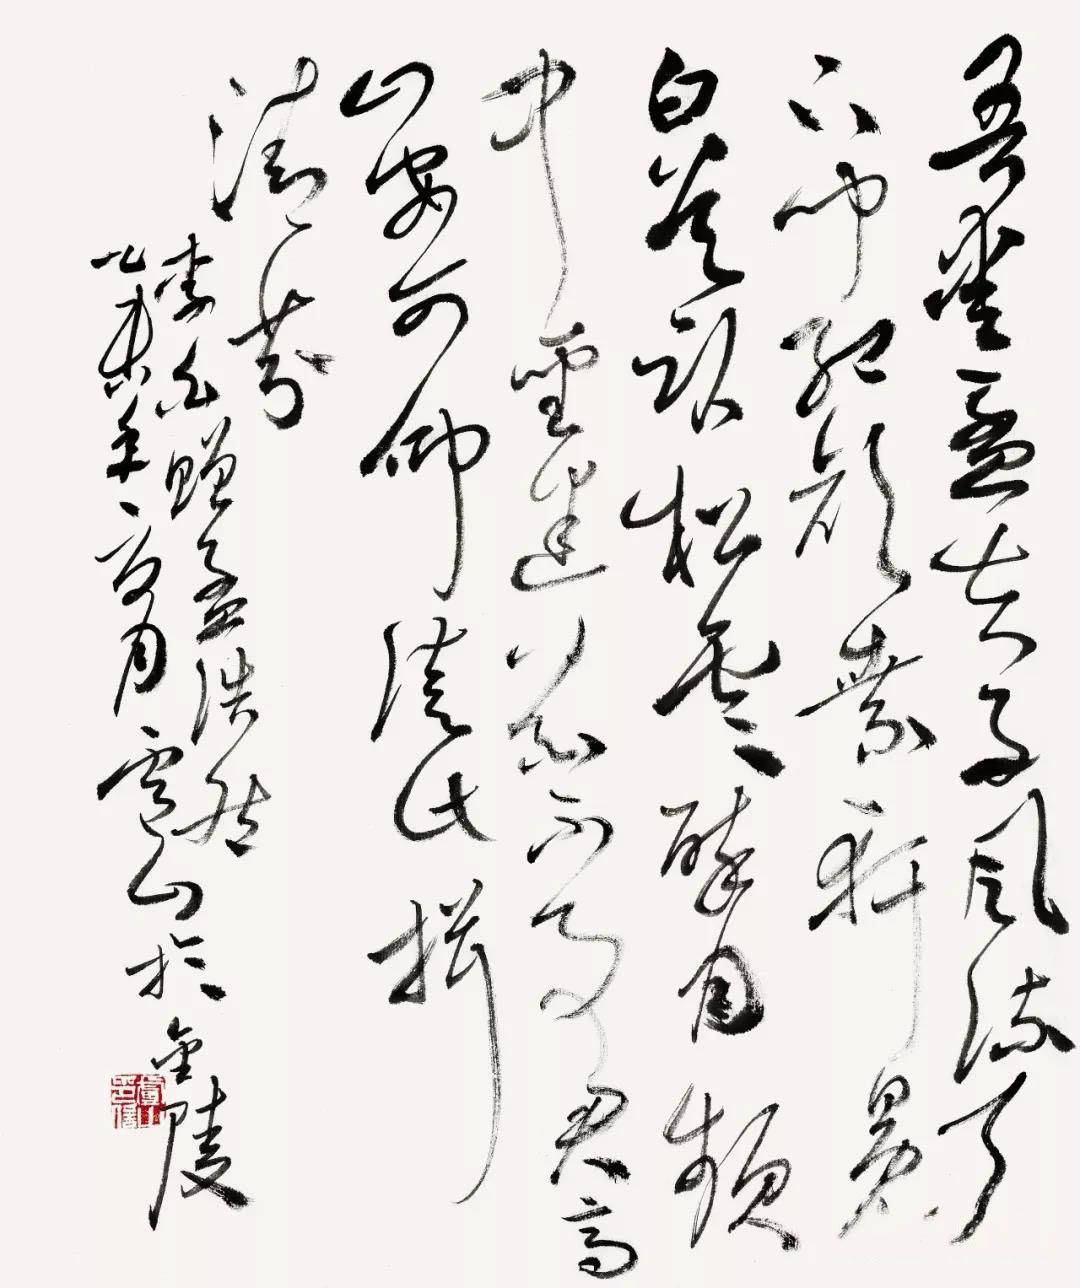 吾愛孟夫子風流天
下聞紅顏棄軒冕
白首卧松雲醉月頻
中聖迷花不事君高
山安可仰徒此揖
清芬
李白贈孟浩然
乙未年夏月山於金陵